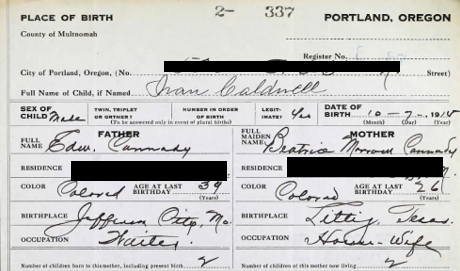 2- 337
PLACE OF BIRTH PORTLAND, OREGON
County of Multnomah
Register No.
City of Portland, Oregon, (No. Street)
Full Name of Child, if Named Ivan Caldwell
SEX OF CHILD Male TWIN, TRIPLET OR OTHER? NUMBER IN ORDER OF BIRTH LEGITIMATE? Yes DATE OF BIRTH 10-7-1914
(To be answered only in event of plural birth) (Month) (Day) (Year)
FATHER MOTHER
FULL NAME Edw. Cannady FULL MAIDEN NAME Beatrice Morrow Cannady
RESIDENCE RESIDENCE
COLOR Colored AGE AT LAST BIRTHDAY 39 (Years) COLOR Colored AGE AT LAST BIRTHDAY 26 (Years)
BIRTHPLACE Jefferson City, Mo. BIRTHPLACE Littig, Texas.
OCCUPATION Waiter OCCUPATION House-Wife
Number of children born to this mother, including present birth 2 Number of children of this mother now living 2